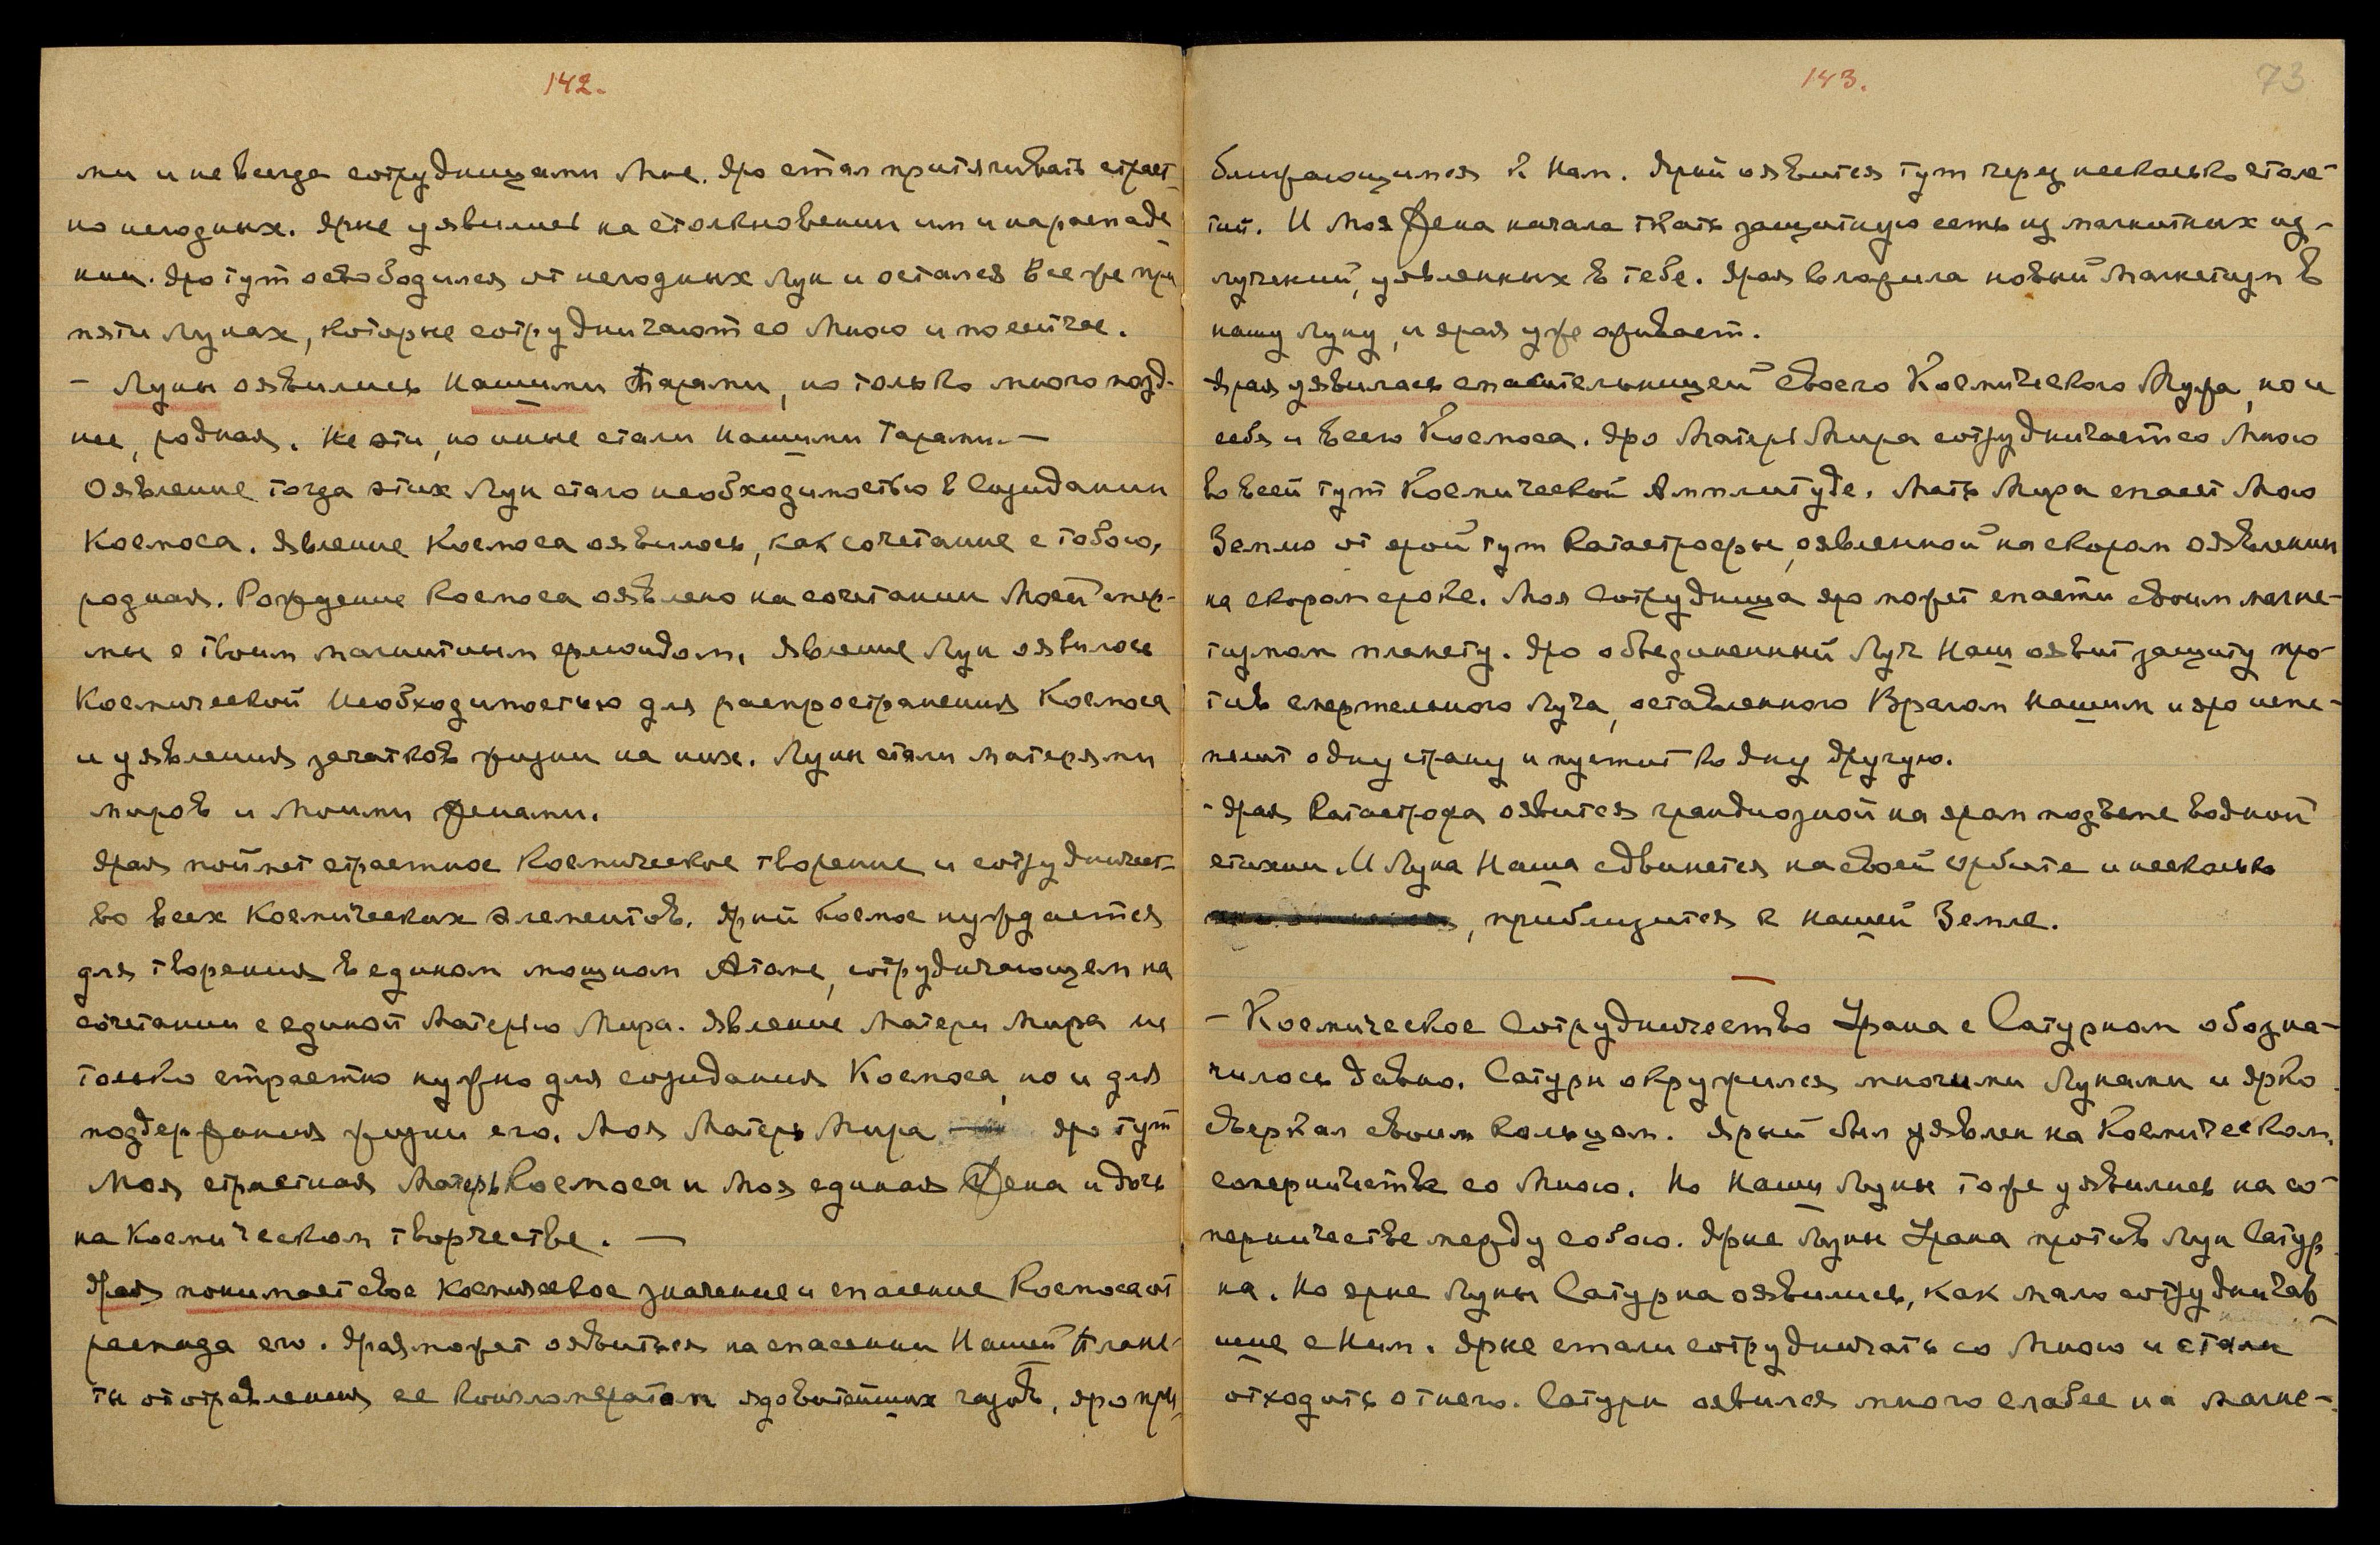 142.
ми и не всегда сотрудницами Мне. Яро стал притягивать страст-
но негодных. Ярые уявились на столкновении им и на распаде
нии. Яро тут освободился от негодных Лун и остался все же при
пяти Лунах, которые сотрудничают со Мною и посейчас.
- Луны оявились Нашими Тарами, но только много позд-
нее, родная. Не эти, но иные стали Нашими Тарами. —
Оявление тогда этих Лун стало необходимостью в Созидании
Космоса. Явление Космоса оявилось, как сочетание с тобою,
родная. Рождение Космоса оявлено на сочетании Моей спер-
мы с твоим магнитным флюидом. Явление Лун оявилось
Космической Необходимостью для распространения Космоса
и уявления зачатков жизни на них. Луны стали матерями
миров и Моими женами.
Ярая поймет страстное Космическое творение и сотрудничест-
во всех Космических Элементов. Ярый Космос нуждается
для творения в едином мощном Атоме, сотрудничающем на
сочетании с единой Матерью Мира. Явление Матери Мира не
только страстно нужно для созидания Космоса, но и для
поддержания жизни его. Моя Матерь Мира яро тут
Моя страстная Матерь Космоса и Моя единая Жена и дочь
на Космическом творчестве. —
Ярая понимает свое космическое значение и спасение Космоса от
распада его. Ярая может оявиться на спасении Нашей Плане-
ты от отравления ее конгломератом ядовитейших газов, яро при-
143.
73
ближающимся к Нам. Ярый оявится тут через несколько столе-
тий. И Моя Жена начала ткать защитную сеть из магнитных из-
лучений, уявленных в тебе. Ярая вложила новый Магнетизм в
нашу Луну, и ярая уже оживает.
Ярая уявилась спасительницей своего Космического Мужа, но и
себя и всего Космоса. Яро Матерь Мира сотрудничает со Мною
во всей тут Космической Амплитуде. Мать Мира спасет Мою
Землю от ярой тут катастрофы, оявленной на скором оявлении
на скором сроке. Моя Сотрудница яро может спасти своим магне-
тизмом планету. Яро объединенный Луч Наш оявит защиту про-
тив смертельного Луча, оставленного Врагом Нашим и яро испе-
пелит одну страну и пустит ко дну другую.
- Ярая Катастрофа оявится грандиозной на яром подъеме водной
стихии. И Луна Наша сдвинется на своей орбите и несколько
, приблизится к нашей Земле.
—
- Космическое Сотрудничество Урана с Сатурном обозна-
чилось давно. Сатурн окружился многими Лунами и ярко
сверкал своим кольцом. Ярый был уявлен на Космическом
соперничестве со Мною. Но Наши Луны тоже уявились на со-
перничестве между собою. Ярые Луны Урана против Лун Сатур-
на. Но ярые Луны Сатурна оявились, как мало сотрудничав-
шие с Ним. Ярые стали сотрудничать со Мною и стали
отходить от него. Сатурн оявился много слабее на магне-